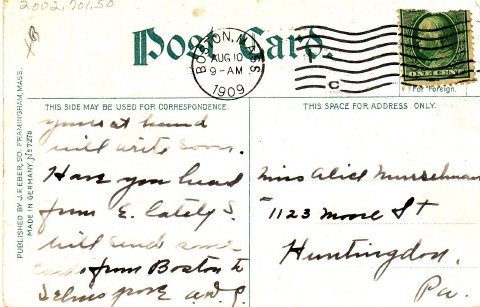 2002.701.50
Post Card.
BOSTON, MASS.
AUG 10
9-AM
1909
C
ONE CENT
For Foreign.
THIS SIDE MAY BE USED FOR CORRESPONDENCE.
THIS SPACE FOR ADDRESS ONLY.
PUBLISHED BY J.F. EBER, SO. FRAMINGHAM, MASS.
MADE IN GERMANY No 7278
yours at hand
will write soon.
Have you heard
from E. lately S.
will send some
from Boston to
Miss Alice Musselman
1123 Moore St
Huntingdon,
Pa.